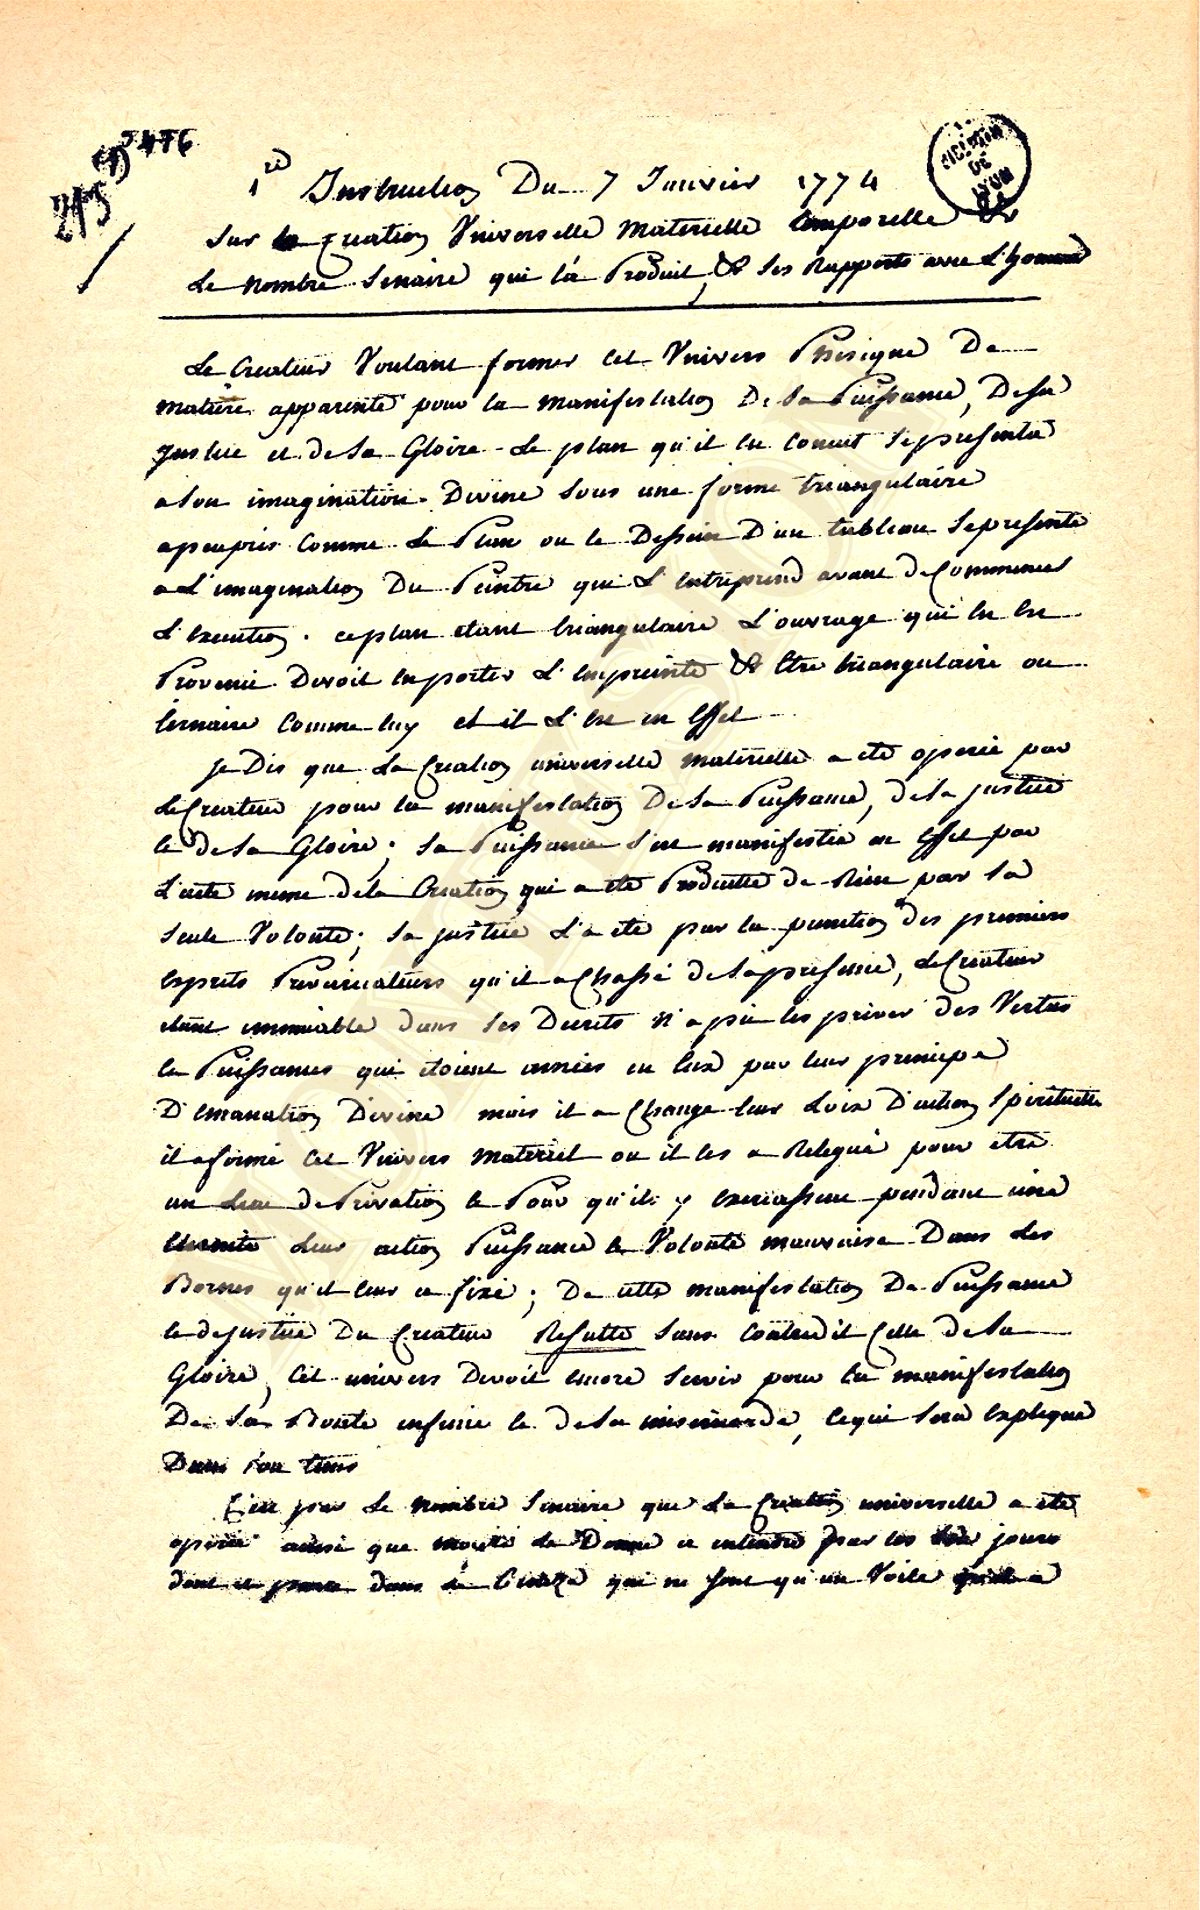 5476
215
BIBLIOTH
DE
LYON
1re Instruction Du 7 Janvier 1774
Sur la Creation Universelle Materielle temporelle &
Le nombre Senaire qui l'a Produit, & Ses Rapports avec L'homme
Le Createur Voulant former cet Univers Phisique De
matiere apparente pour la manifestation De Sa Puissance, De Sa
Justice et de Sa Gloire Le plan qu'il en concut Se presenta
a Son imagination Divine Sous une forme triangulaire
apeuprès Comme Le Plan ou le Dessein D'un tableau Se presente
a L'imagination Du Peintre qui L'entreprend avant de Commencer
L'execution. ce plan etant triangulaire L'ouvrage qui en est
Provenu Devoit en porter L'empreinte & Etre triangulaire ou
ternaire Comme luy et il L'est en Effet
Je Dis que La Creation universelle materielle a eté operée par
Le Createur pour la manifestation De Sa Puissance, de Sa justice
et de Sa Gloire; Sa Puissance S'est manifestée en Effet par
L'acte meme de la Creation qui a eté Produitte de Rien par Sa
Seule Volonté; Sa justice L'a eté par la punition des premiers
Esprits Prevaricateurs qu'il a Chassé de Sa presence, Le Createur
etant immuable dans Ses Decrets N'a pu les priver des Vertus
et Puissances qui etoient innées en Eux par leur principe
D'emanation Divine mais il a Changé leur Loix D'action Spirituelle
il a formé Cet Univers Materiel ou il les a Relegué pour etre
un Lieu de Privation et Pour qu'ils y exercassent pendant une
Eternité Leur action Puissance et Volonté mauvaise Dans Les
Bornes qu'il leur a fixé; De cette manifestation De Puissance
et de justice Du Createur Resulte Sans Contredit Celle de Sa
Gloire, Cet univers Devoit encore Servir pour la manifestation
De Sa Bonté infinie et de Sa misericorde, ce qui Sera Expliqué
Dans Son tems
C'est par Le Nombre Senaire que La Creation universelle a eté
operée ainsi que moïse le Donne a entendre par les Six jours
dont il parle dans La Genèze qui ne Sont qu'un Voile qu'il a